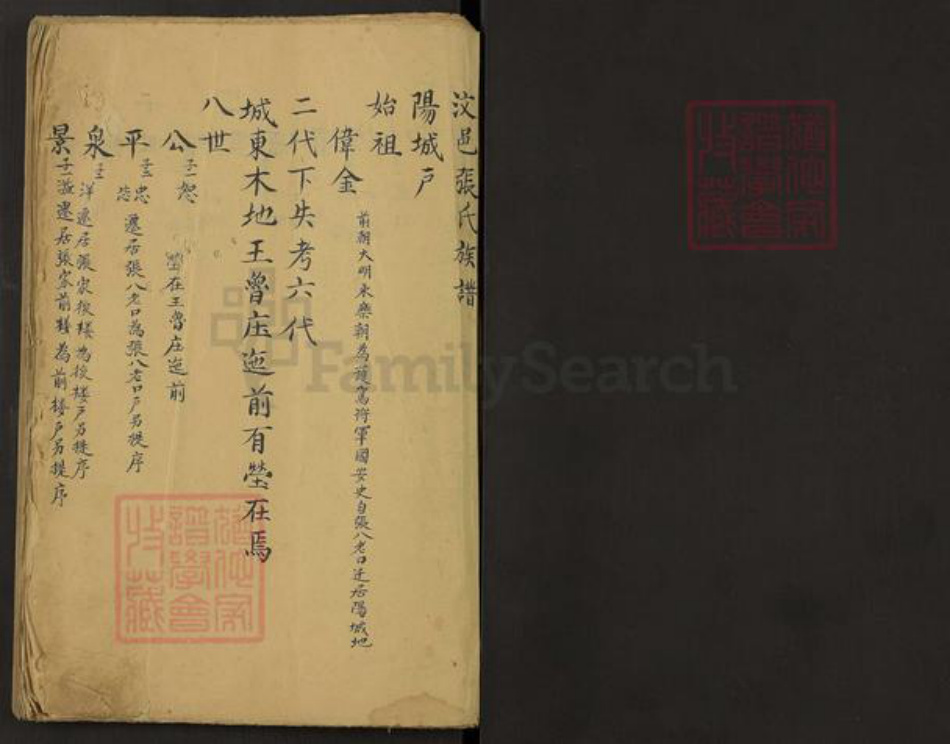 汶邑張氏族譜
陽城戶
始祖
偉金 前朝大明永樂朝為護駕將軍國安史自張八老口迁居陽城地
二代下失考六代
城東木地王魯庄迤前有塋在焉
八世
公 子一 恕 塋在王魯庄迤前
平 子二 忠 遷居張八老口為張八老口戶另提序
泉 子一 洋遷居張家後楼為後楼戶另提序
景 子一 滋遷居張家前楼為前楼戶另提序
FamilySearch
譜學會
收藏
譜學會
收藏